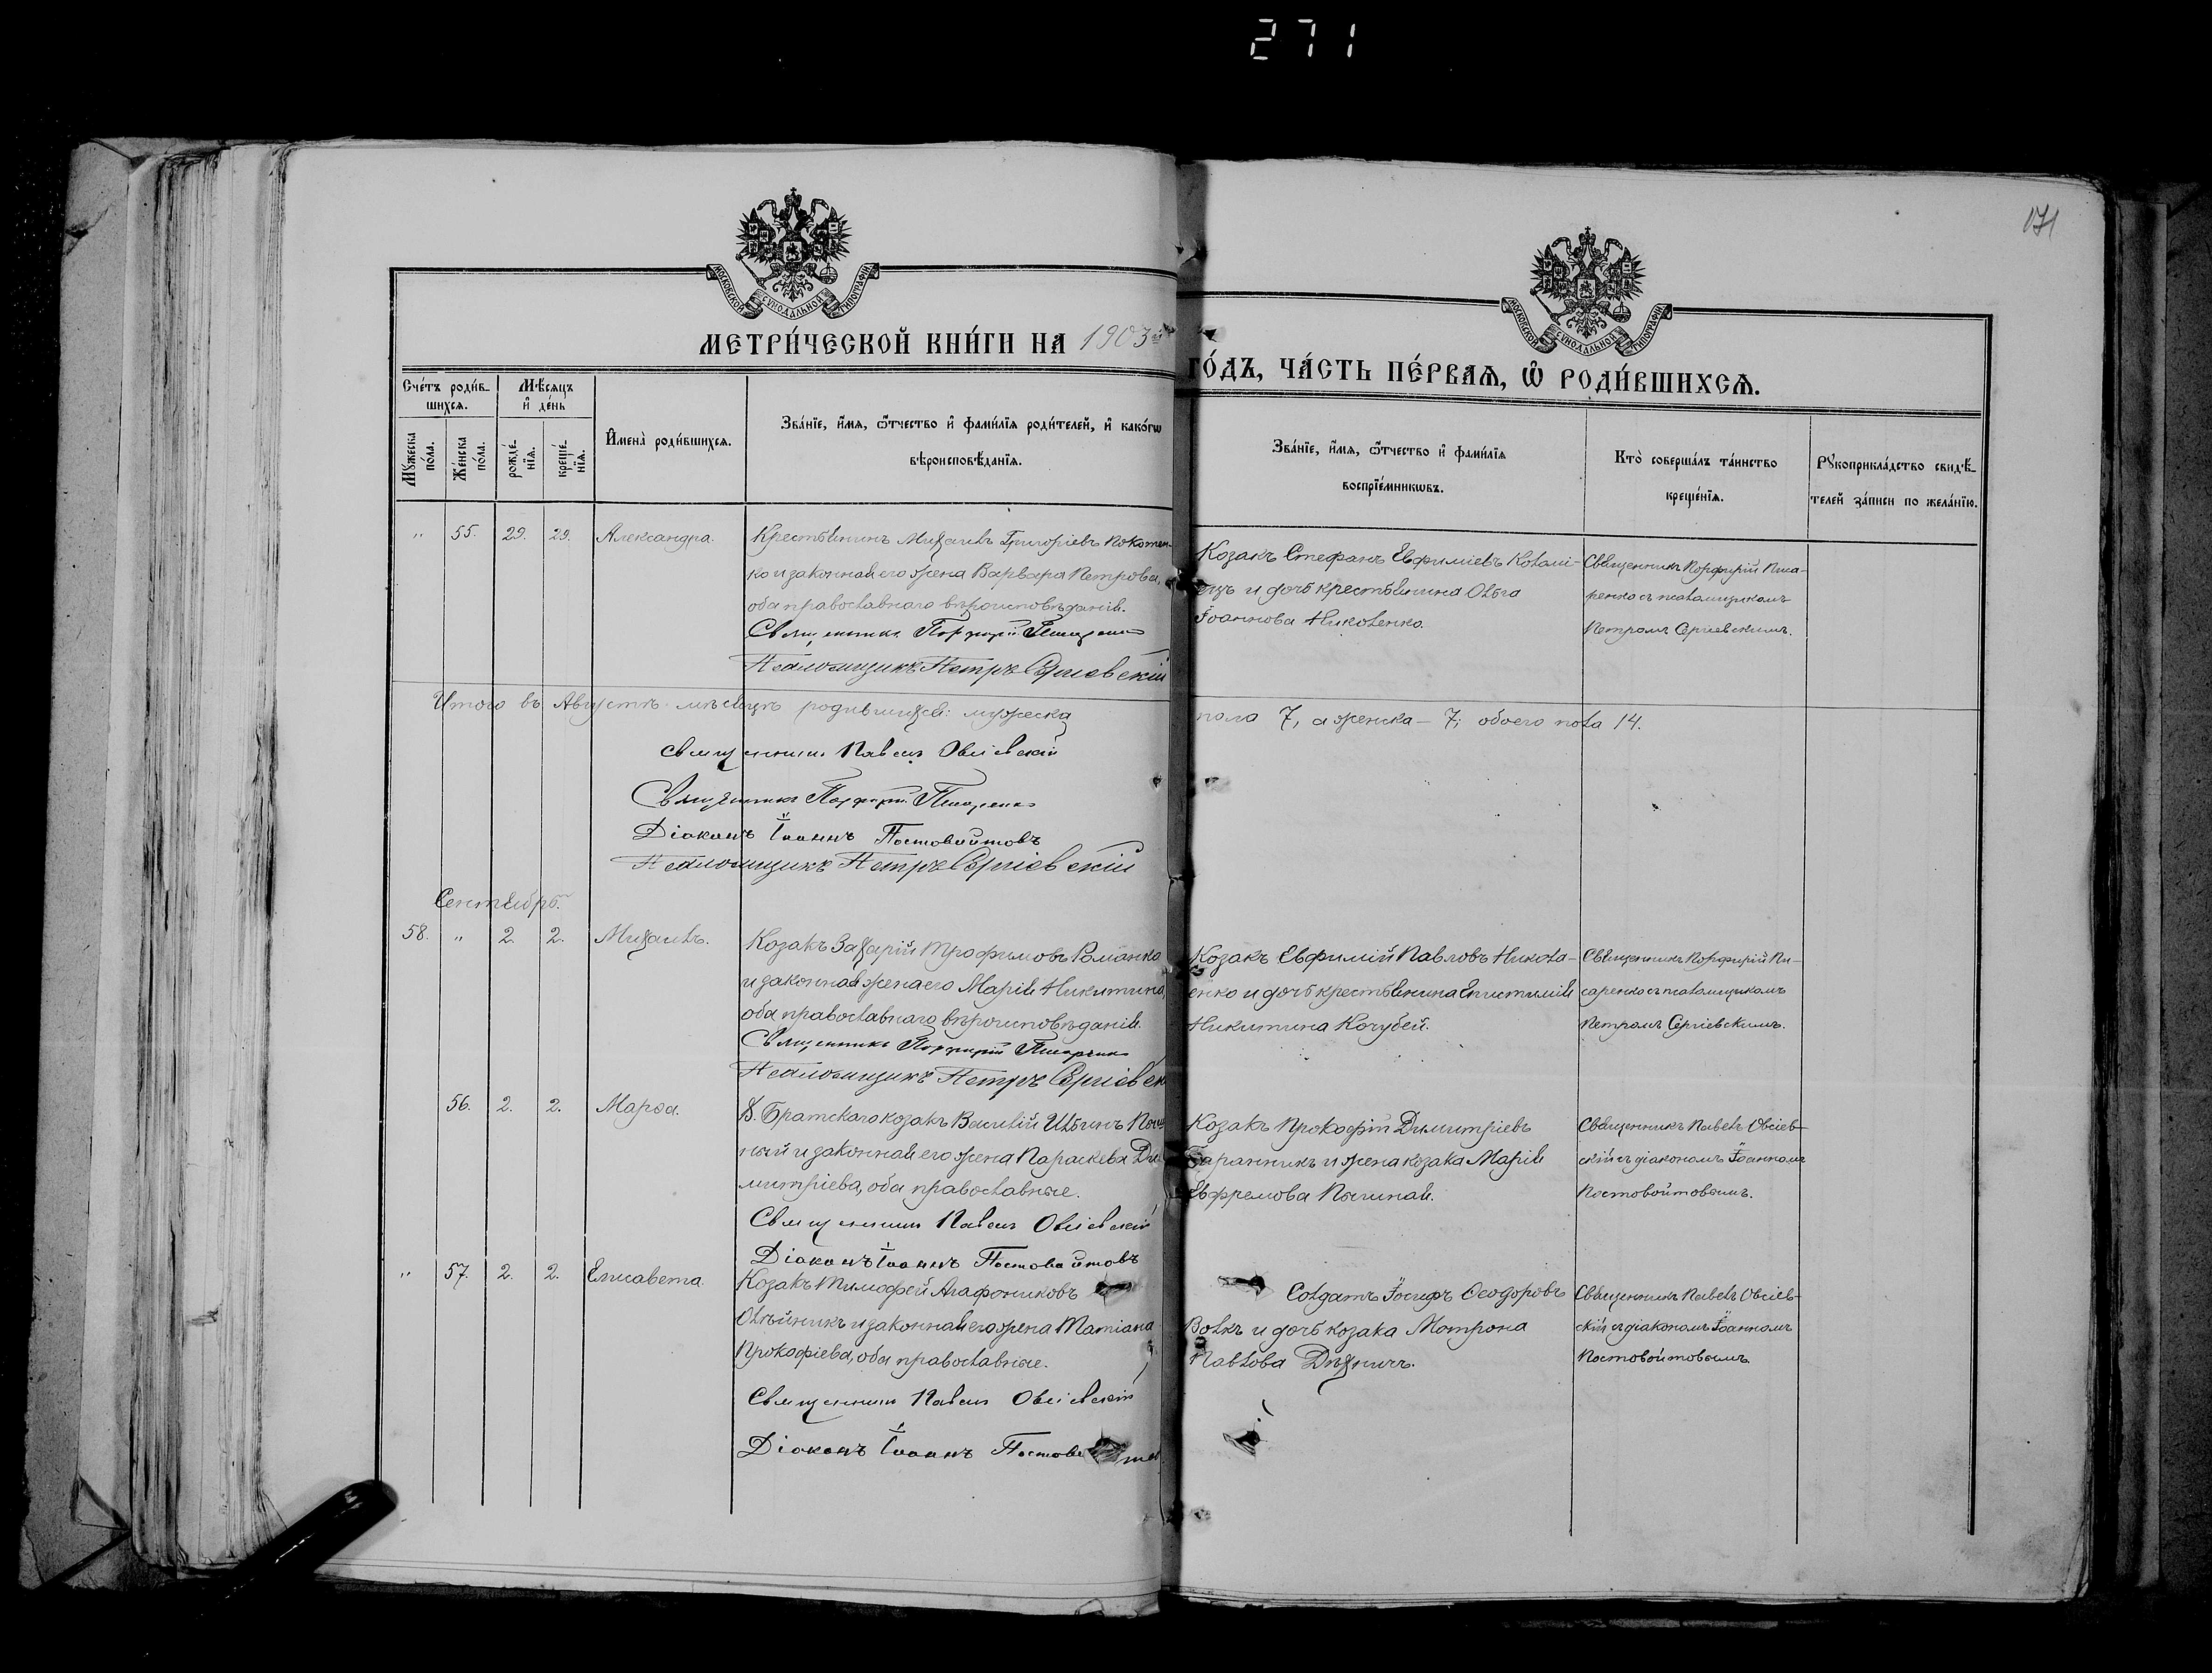 271
171
МОСКОВСКОЙ СѴНОДАЛЬНОЙ ТИПОГРАФІИ
МОСКОВСКОЙ СѴНОДАЛЬНОЙ ТИПОГРАФІИ
МЕТРИ́ЧЕСКОЙ КНИ́ГИ НА 1903й
ГО́ДЪ, ЧА́СТЬ ПЕ́РВАѦ, Ѡ҆ РОДИ́ВШИХСѦ.
Сче́тъ роди́в-
шихсѧ.
Мꙋжеска
по́ла.
Же́нска
по́ла.
Мѣ́сѧцъ
и҆ де́нь
рожде́-
нїѧ.
креще́-
нїѧ.
И҆мена̀ роди́вшихсѧ.
Зва́нїе, и҆́мѧ, ѻ҆́тчество и҆ фами́лїѧ роди́телей, и҆ како́гѡ
вѣроисповѣ́данїѧ.
Зва́нїе, и҆́мѧ, ѻ҆́тчество и҆ фами́лїѧ
воспрїе́мникѡвъ.
Кто̀ соверша́лъ та́инство
креще́нїѧ.
Рꙋкоприкла́дство свидѣ́-
телей за́писи по жела́нїю.
" 55. 29. 29. Александра.
Крестьянинъ Михаилъ Григоріевъ Покотен-
ко и законная его жена Варвара Петрова,
оба православнаго вѣроисповѣданія.
Священникъ Порфирій Писаренко
Псаломщикъ Петръ Сергіевскій
Козакъ Стефанъ Евфиміевъ Колом-
ецъ и дочь крестьянина Ольга
Іоаннова Николенко.
Священникъ Порфирій Писа-
ренко съ псаломщикомъ
Петромъ Сергіевскимъ.
Итого въ Августѣ мѣсяцѣ родившихся: мужеска
пола 7, а женска – 7; обоего пола 14.
Священникъ Павелъ Овсіевскій
Священникъ Порфирій Писаренко
Діаконъ Іоаннъ Постовойтовъ
Псаломщикъ Петръ Сергіевскій
Сентябрь.
58. " 2. 2. Михаилъ.
Козакъ Захарій Трофимовъ Романко
и законная жена его Марія Никитина,
оба православнаго вѣроисповѣданія.
Священникъ Порфирій Писаренко
Псаломщикъ Петръ Сергіевск
Козакъ Евфимій Павловъ Никола-
енко и дочь крестьянина Епистимія
Никитина Кочубей.
Священникъ Порфирій Пи-
саренко съ псаломщикомъ
Петромъ Сергіевскимъ.
56. 2. 2. Марѳа.
Д. Братскаго козакъ Василій Ильинъ
ный и законная его жена Параскева Ди-
митріева, оба православные.
Священникъ Павелъ Овсіевскій
Діаконъ Іоаннъ Постовойтовъ
Козакъ Прокофій Димитріевъ
Баранникъ и жена козака Марія
Евфремова
Священникъ Павелъ Овсіев-
скій съ діакономъ Іоанномъ
Постовойтовымъ.
" 57. 2. 2. Елисавета.
Козакъ Тимофей Агафониковъ
Олѣйникъ и законная его жена Татіана
Прокофіева, оба православные.
Священникъ Павелъ Овсіевскій
Діаконъ Іоаннъ Постовойтов
Солдатъ Іосифъ Ѳеодоровъ
Волкъ и дочь козака Мотрона
Павлова
Священникъ Павелъ Овсіев-
скій съ діакономъ Іоанномъ
Постовойтовымъ.